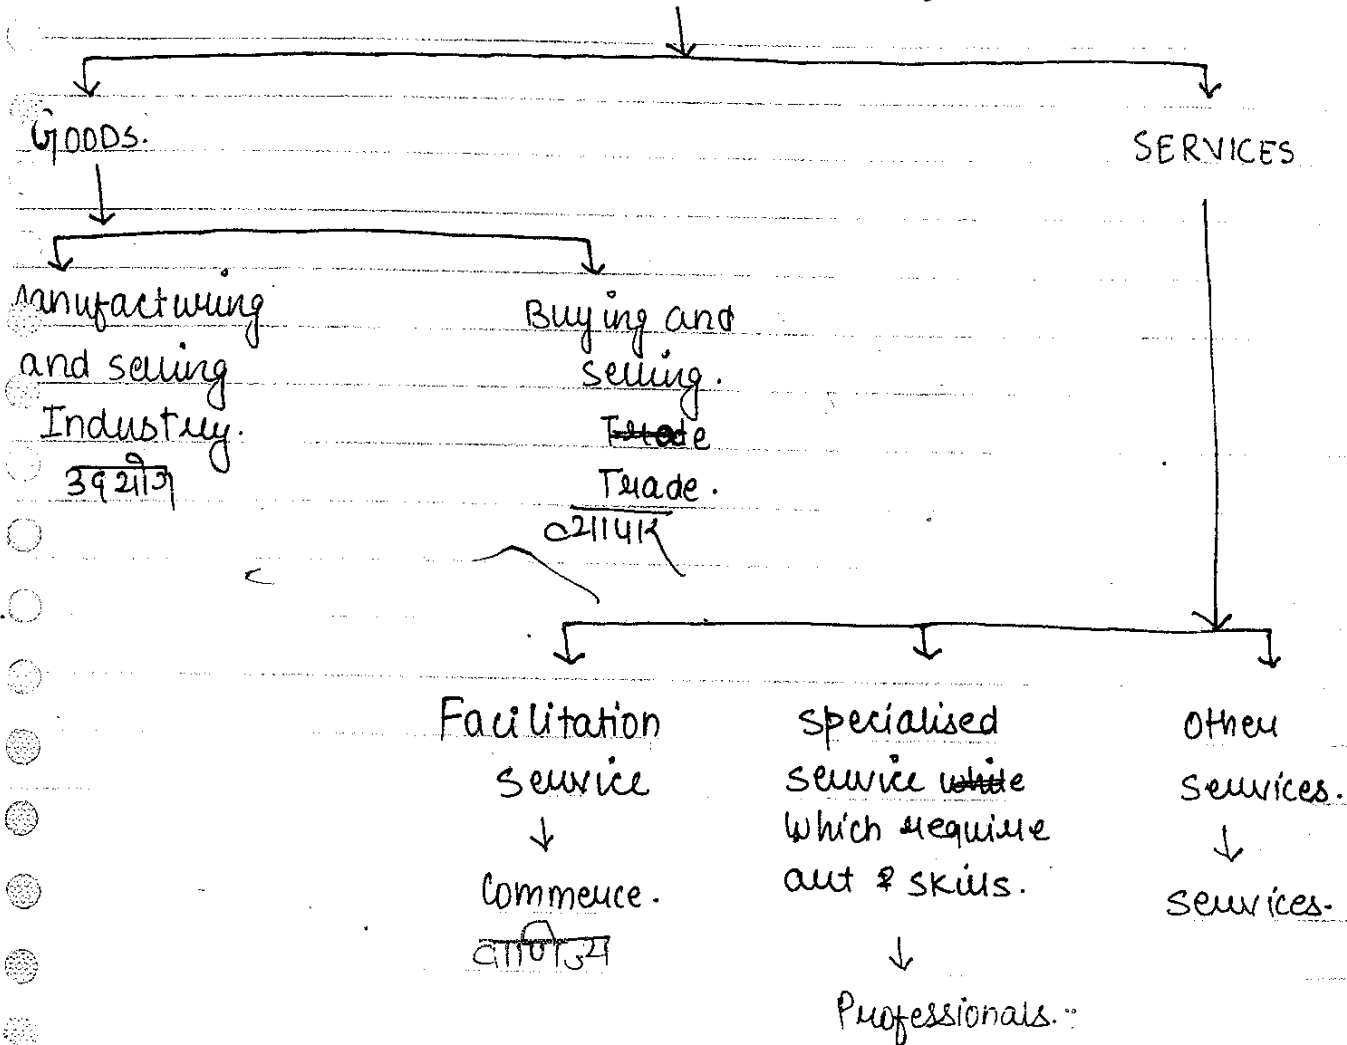 GOODS.
SERVICES
Manufacturing
and selling
Industry.
उद्योग
Buying and
selling.
Trade
Trade.
व्यापार
Facilitation
service
Commerce.
वाणिज्य
specialised
service white
which require
art & skills.
Professionals.
other
services.
services.